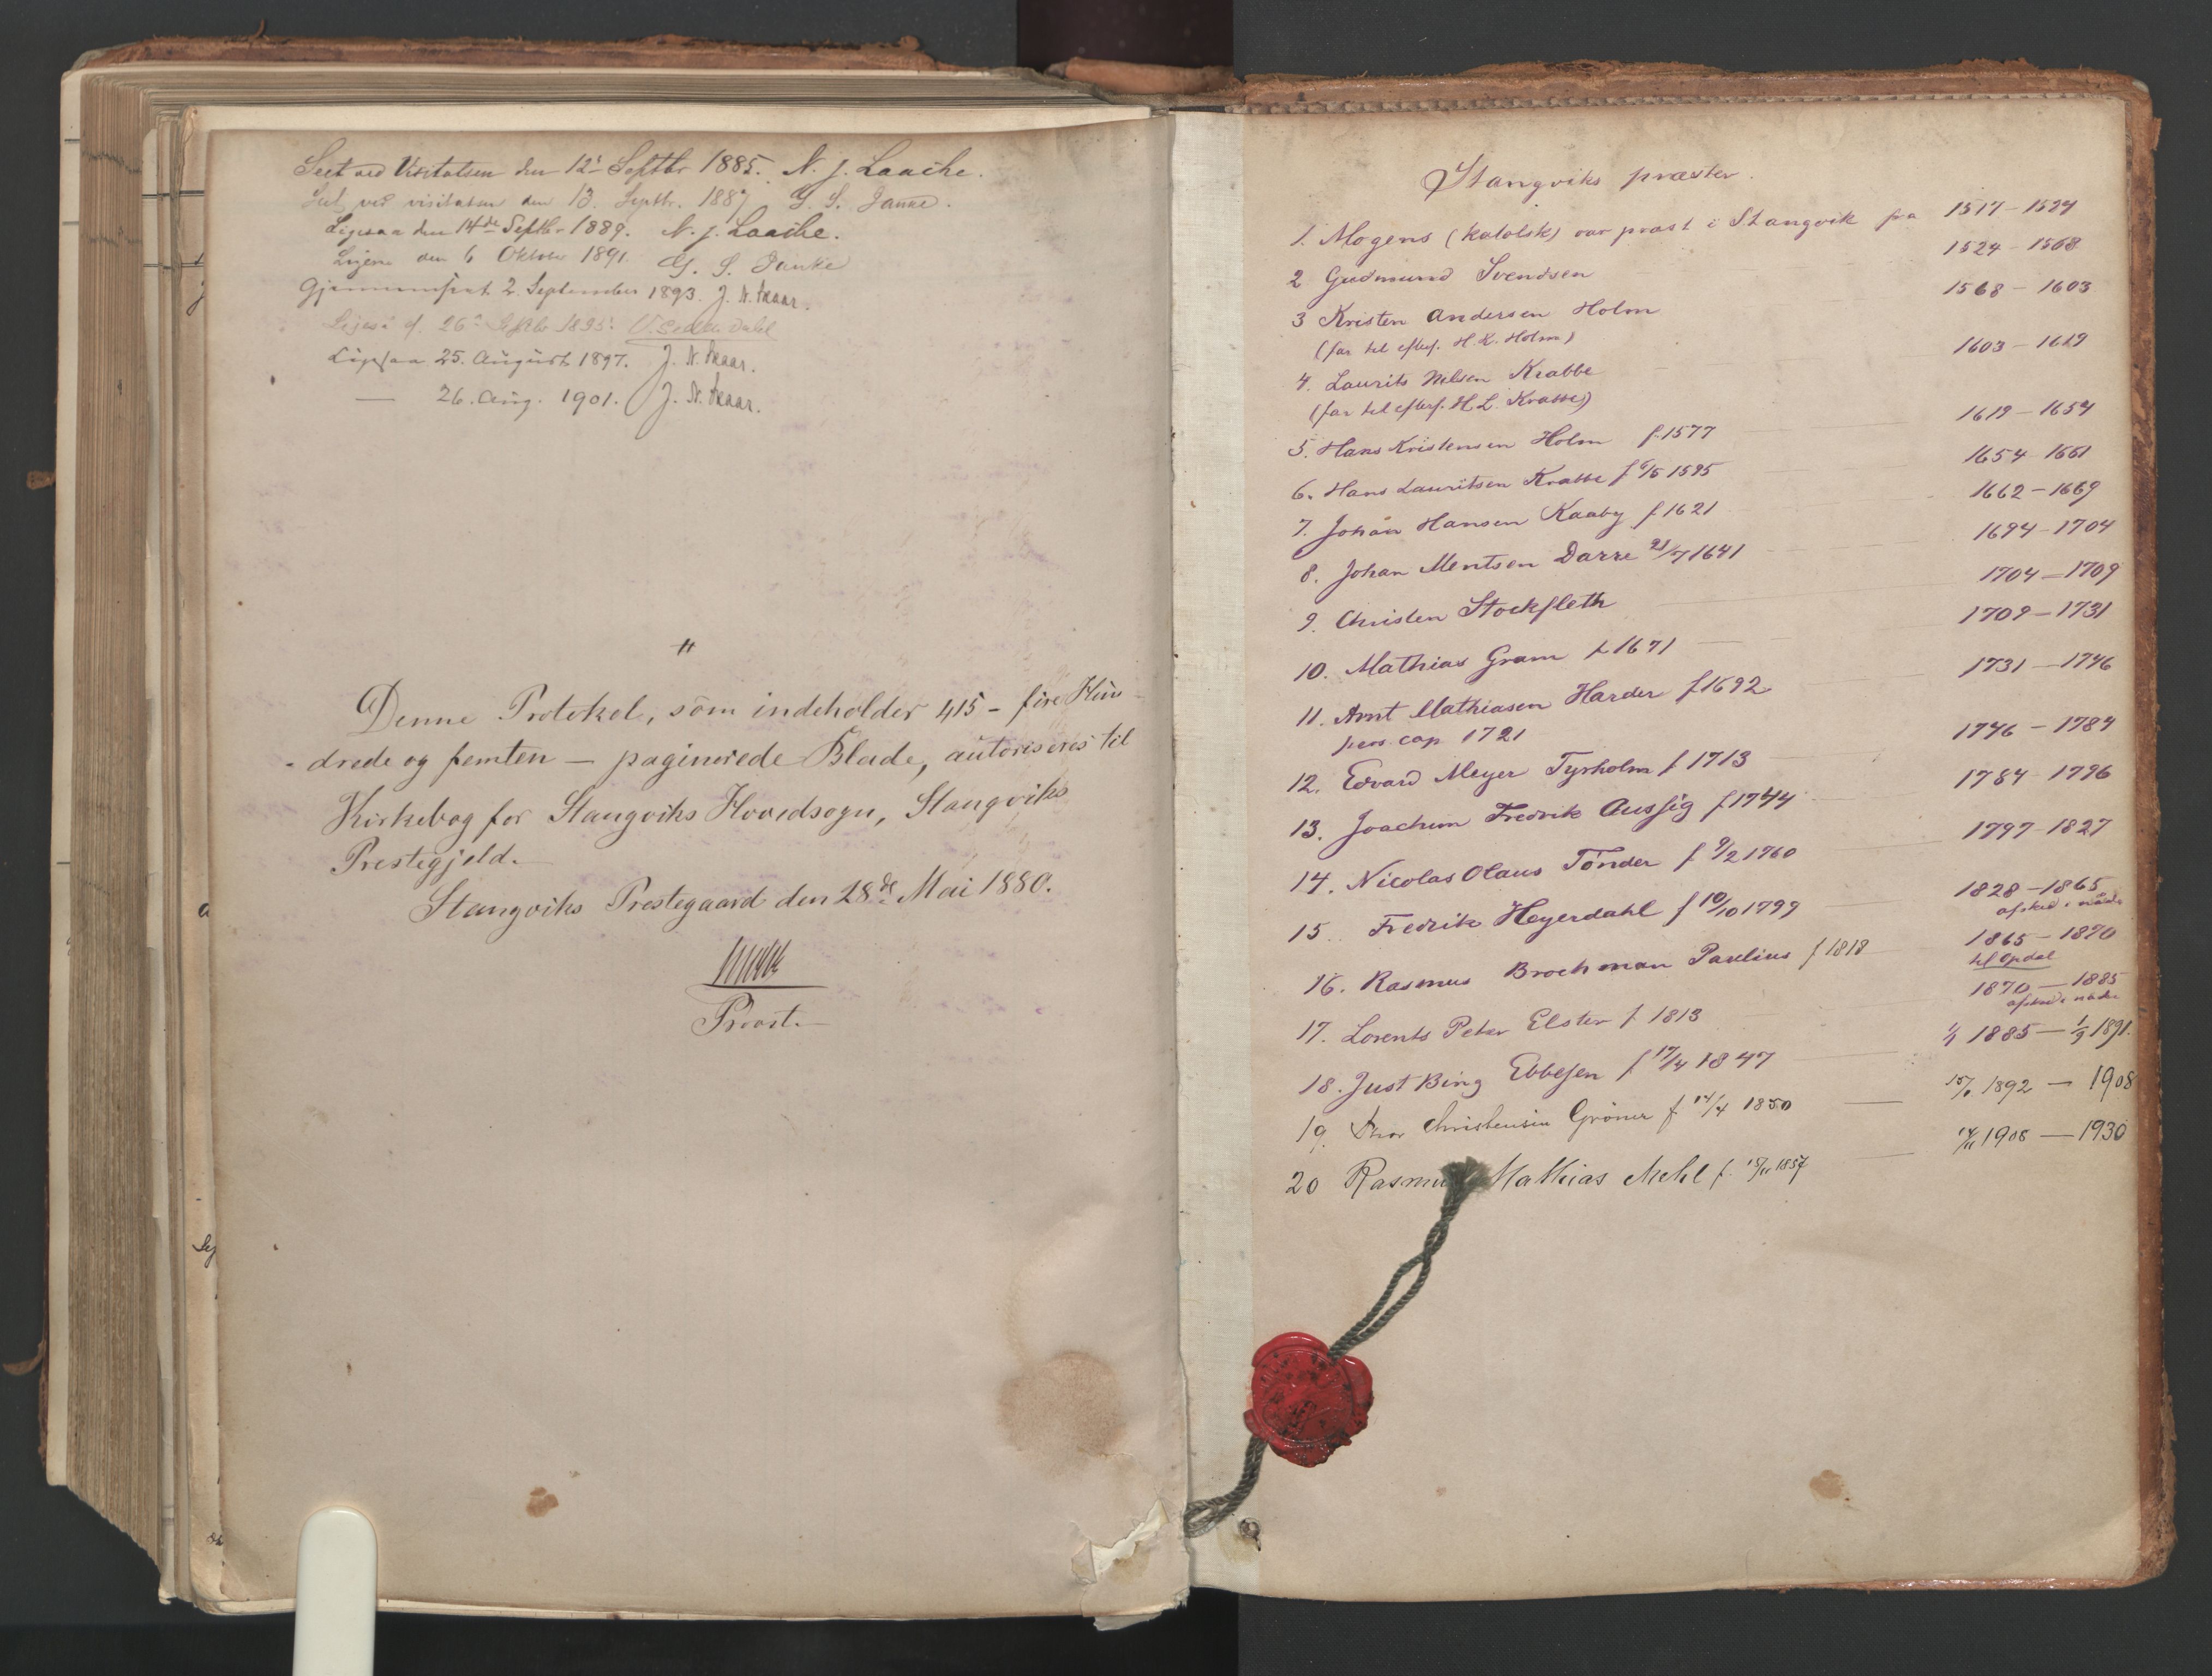 Seet ved Visitatsen den 12te Septbr 1885. N. J. Laache.
Seet ved visitatsen den 13. Septbr. 1887 G. S. Janke.
Ligesaa den 14de Septbr 1889. N. J. Laache.
den 6 Oktober 1891 G. S. Janke
Gjennemseet 2. September 1893. J. N. Skaar.
26 Septbr 1895. Dahl
Ligesaa 25. August 1897. J. N. Skaar.
— 26. Aug. 1901. J. N. Skaar.
Denne Protokol, som indeholder 415 – fire Hun
drede og femten – paginerede Blade, autoriseres til
Kirkebog for Stangviks Hovedsogn, Stangviks
Prestegjeld.
Stangviks Prestegaard den 28de Mai 1880.
Provst.
Stangviks præster.
1. Mogens (katolsk) var prest i Stangvik fra 1517–1524
2 Gudmund Svendsen 1524–1568
3 Kristen Andersen Holm 1568–1603
(far til efterf. H. K. Holm)
4. Laurits Nilsen Krabbe 1603–1619
(far til efterf. H. L. Krabbe)
5. Hans Kristensen Holm f. 1577 1619–1654
6. Hans Lauritsen Krabbe f 6/5 1595 1654–1661
7. Johan Hansen Kaaby f 1621 1662–1669
8. Johan Mentsen Darre 21/7 1641 1694–1704
9. Christen Stockfleth 1704–1709
10. Mathias Gram f. 1671 1709–1731
11. Arnt Mathiasen Harder f 1692 1731–1746
pers. cap 1721
12. Edvard Meyer Tyrholm f 1713 1746–1784
13. Joachim Fredrik Aussig f 1744 1784–1796
14. Nicolas Olaus Tønder f 9/2 1760 1797–1827
15. Fredrik Heyerdahl f 10/10 1799 1828–1865
afsked i naade
16. Rasmus Brochman Paulius f 1818 1865–1870
til Opdal
17. Lorents Peter Elster f. 1813 1870–1885
afsked i naade
18. Just Bing Ebbesen f 17/4 1847 1/1 1885–1/9 1891.
19. Christensen Grøner f. 14/4 1850 — 1892 — 1908
20 Rasmus Mathias Mehl f. 15/11 1857 — 14/11 1908 — 1930